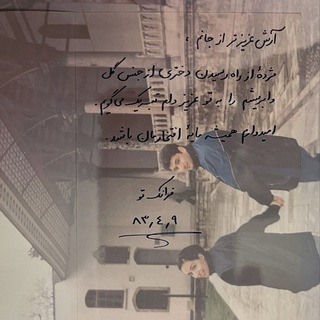 آرش عزیزتر از جانم ،
مژدهٔ از راه رسیدن دختری از جنس گل
و ابریشم را به تو عزیز دلم تبریک می‌گویم.
امیدوارم همیشه مایهٔ افتخارمان باشد.
فرانک تو
۸۳٫۴٫۹